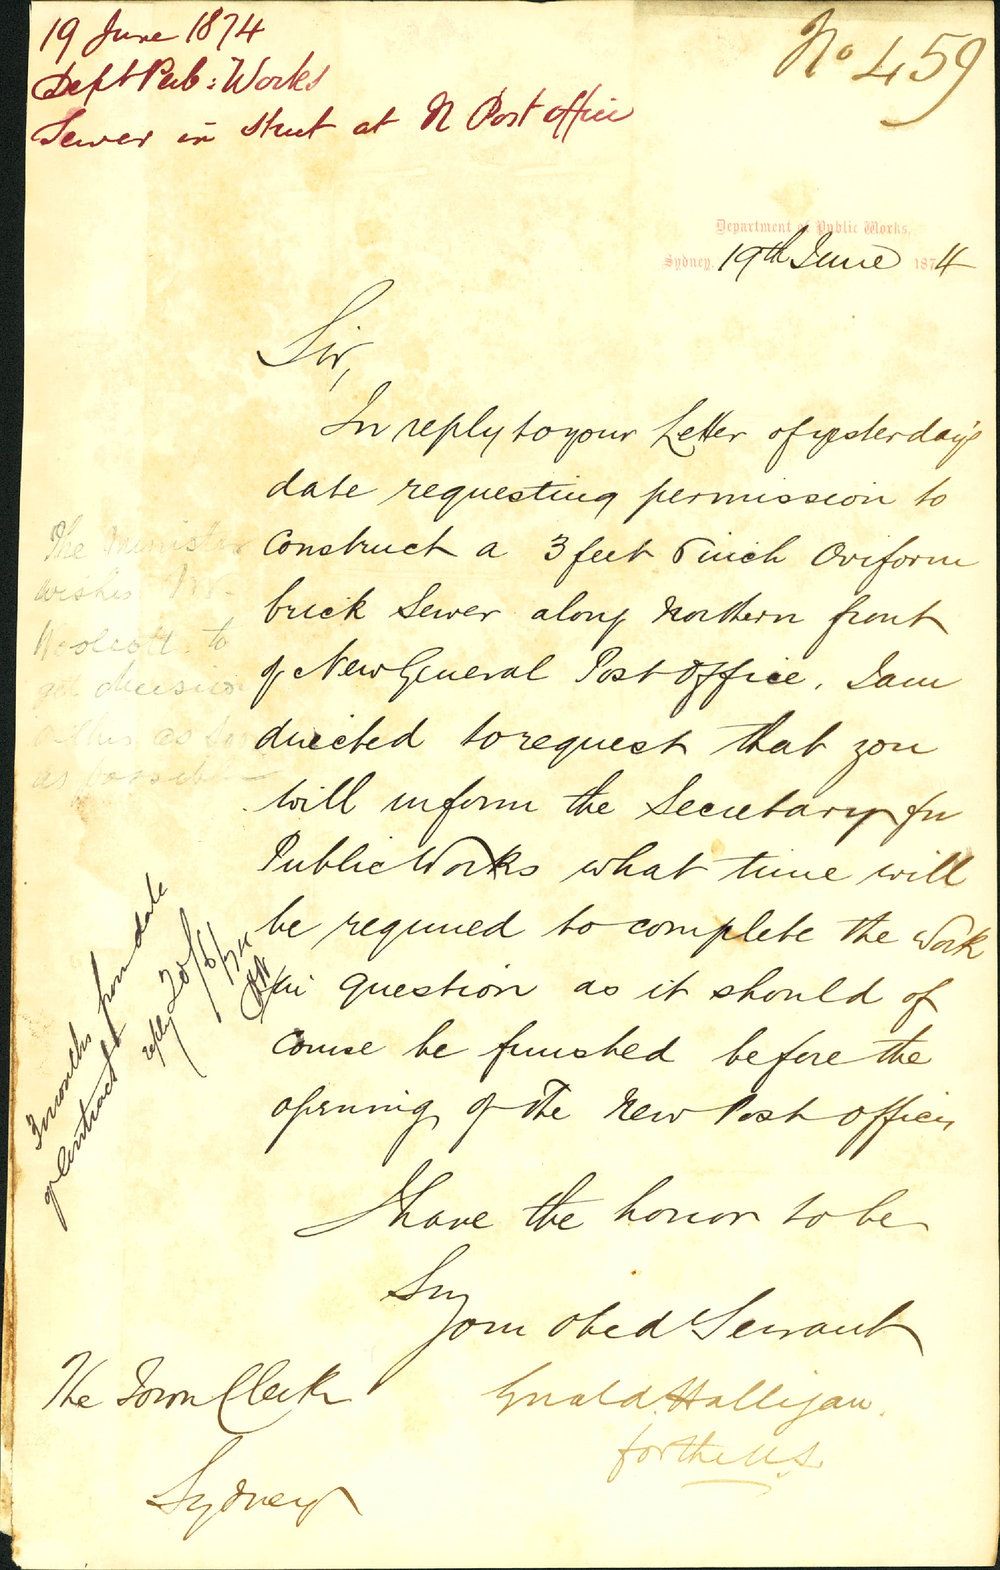 19 June 1874
Dept Pub: Works
Sewer in Street at N Post office
No 459
Department of Public Works,
Sydney, 19th June 1874
Sir,
In reply to your Letter of yesterday's
date requesting permission to
Construct a 3 feet 6 inch Oviform
brick Sewer along Northern front
of New General Post Office, I am
directed to request that you
will inform the Secretary for
Public Works what time will
be required to complete the work
in question as it should of
course be finished before the
opening of the New Post office
I have the honor to be
Sir
Your obed Servant
Gerald Halligan.
for the U.S.
The Town Clerk
Sydney
The Minister
wishes Mr.
Woolcott to
get decision
on this as soon
as possible
3 months from date
of Contract
reply 20/6/74